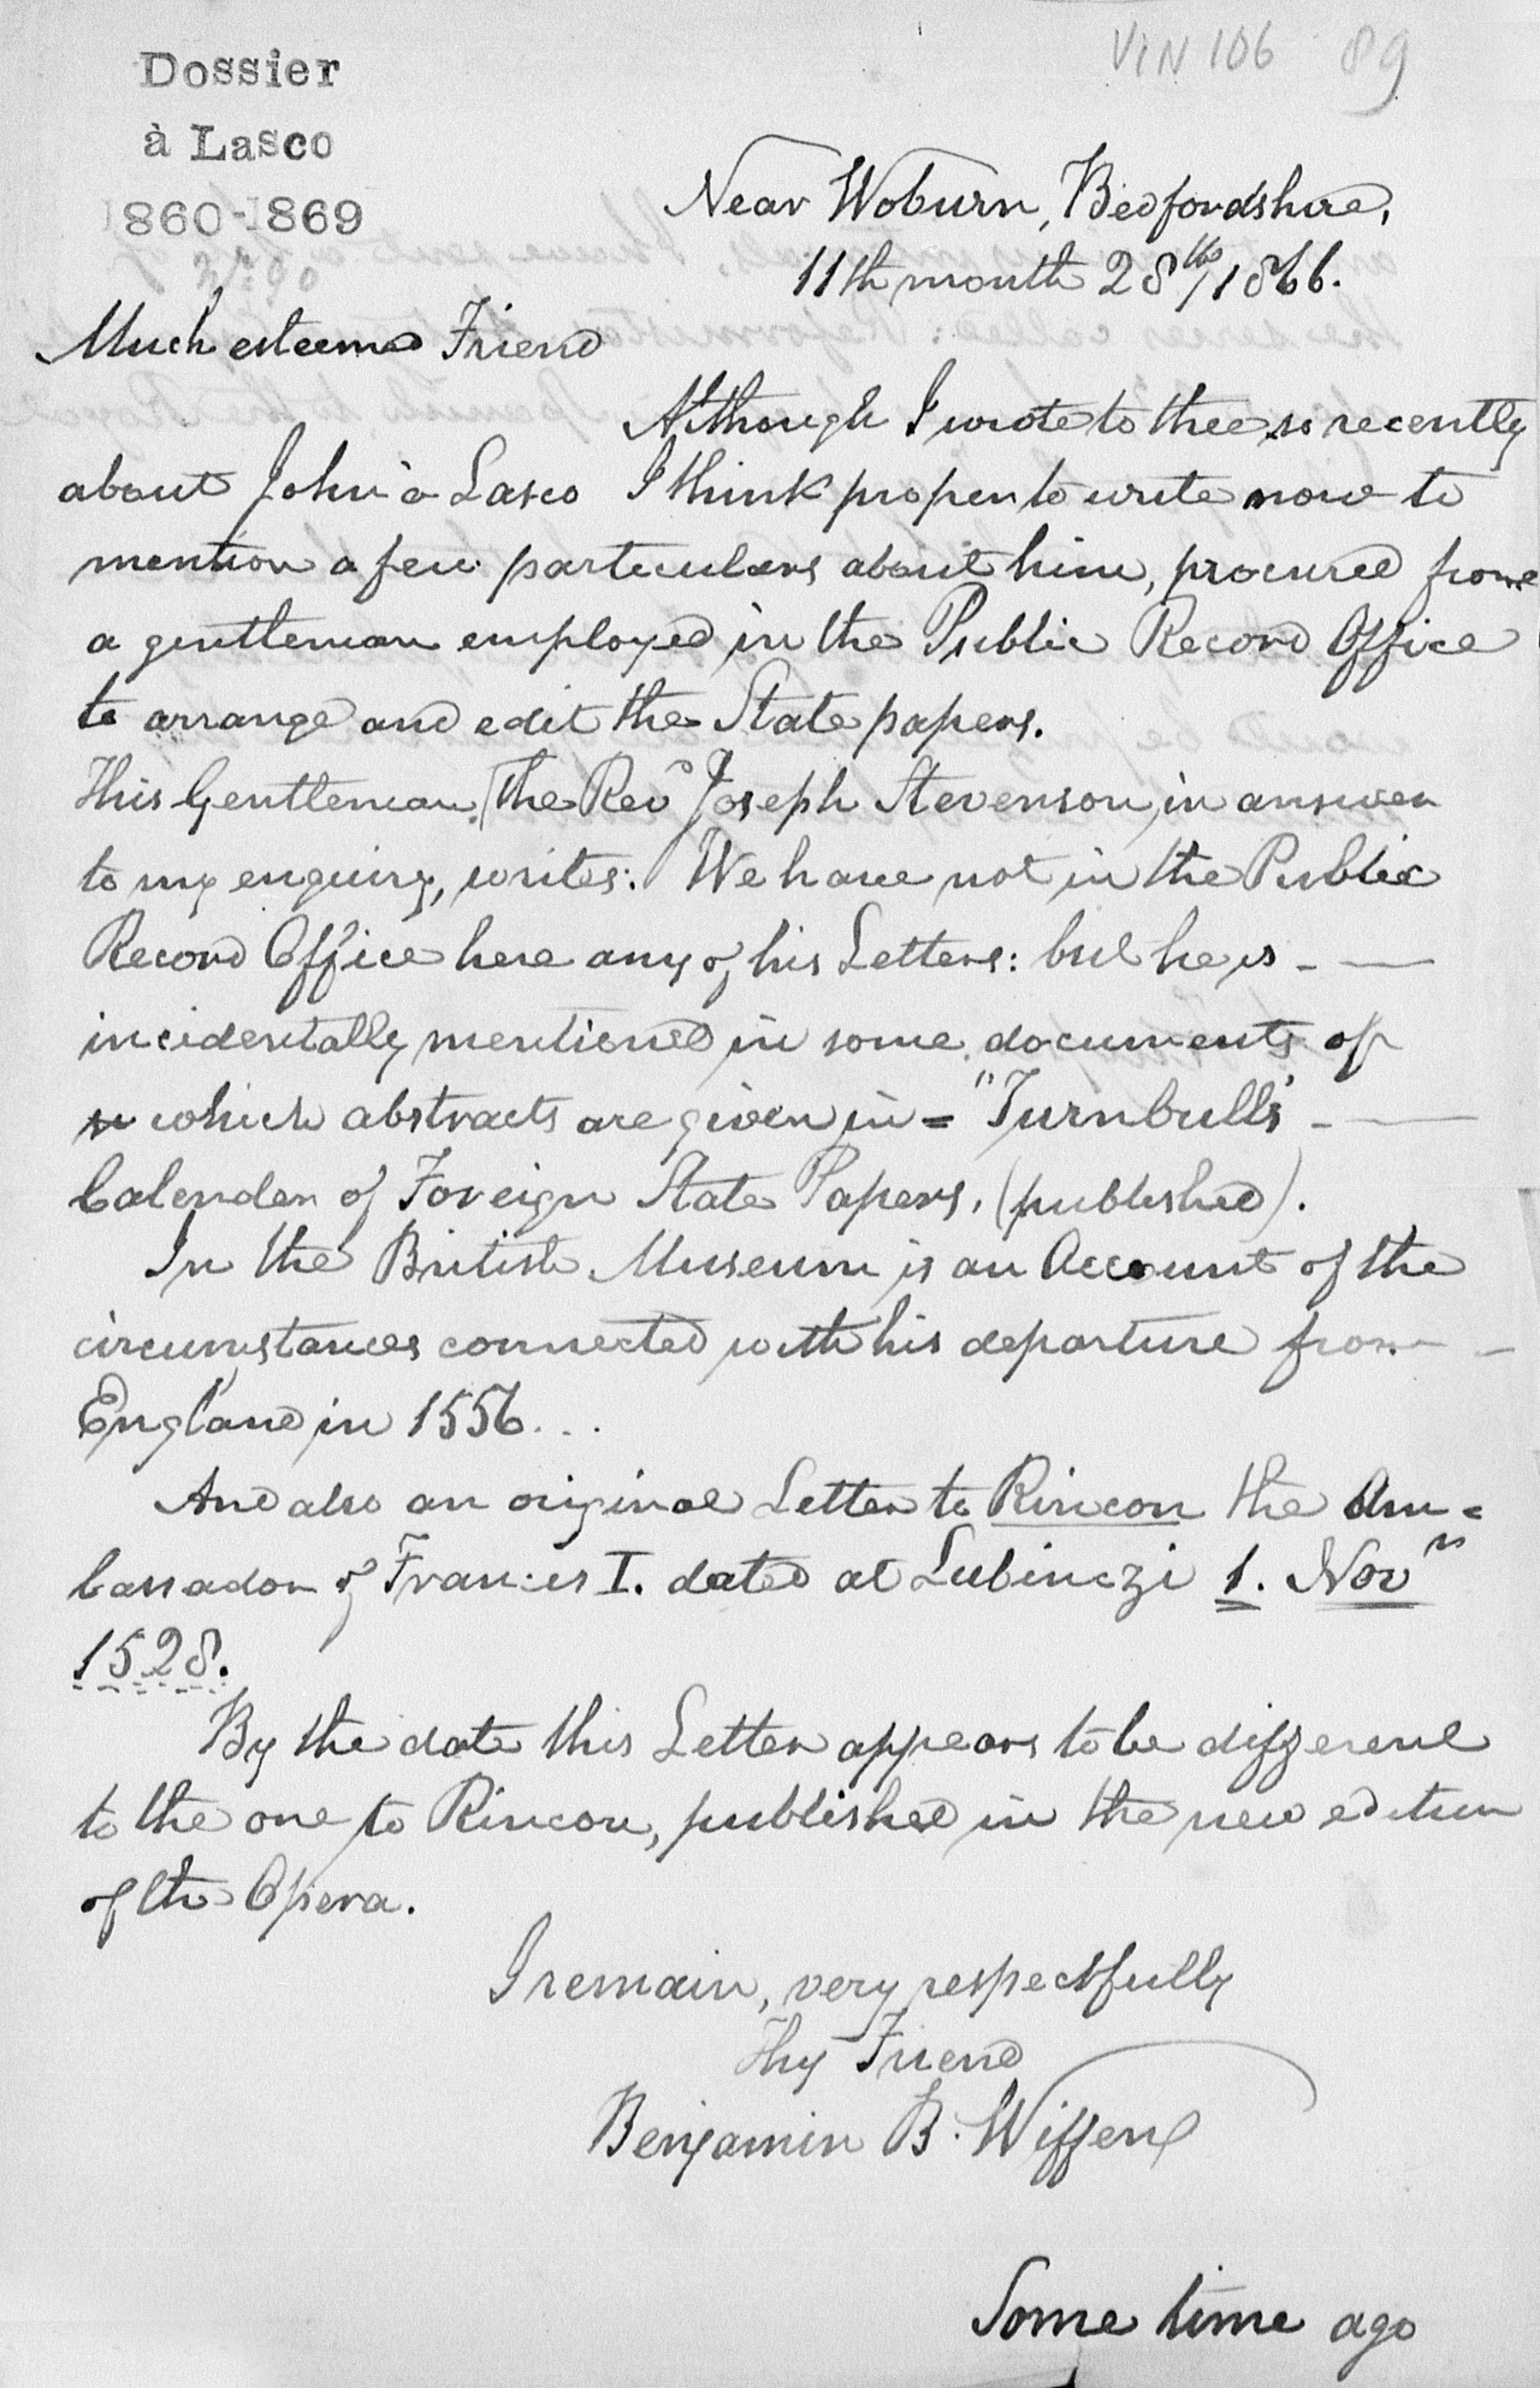 Dossier
à Lasco
1860-1869
VIN 106 89
Near Woburn, Bedfordshire,
11th month 28th/1866.
Much esteemed Friend
Although I wrote to thee so recently
about John à Lasco I think proper to write now to
mention a few particulars about him, procured from
a gentleman employed in the Public Record Office
to arrange and edit the State papers.
This Gentleman, (the Revd Joseph Stevenson, in answer
to my enquiry, writes: We have not in the Public
Record Office here any of his Letters: but he is - —
incidentally mentioned in some documents of
which abstracts are given in = "Turnbulls' - —
Calender of Foreign State Papers, (published).
In the British Museum is an Account of the
circumstances connected with his departure from -
England in 1556...
And also an original Letter to Rincon the Am=
bassador of Francis I. dated at Lubinczi 1. Novr
1528.
By the date this Letter appears to be different
to the one to Rincon, published in the new edition
of the Opera.
I remain, very respectfully
Thy Friend
Benjamin B. Wiffen
Some time ago